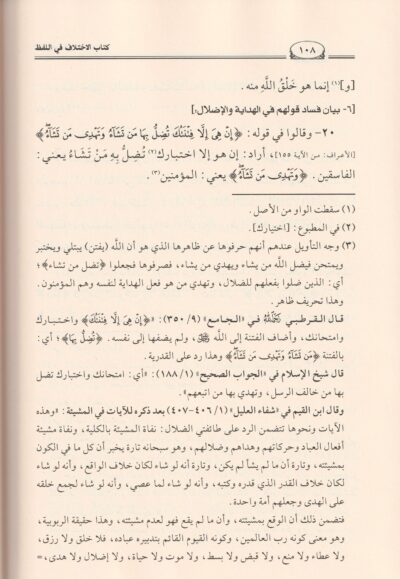 ١٠٨ كتاب الاختلاف في اللفظ
[و]⁽¹⁾ إنما هو خَلْقُ اللَّهِ منه.
[٦- بيان فساد قولهم في الهداية والإضلال:]
٢٠- وقالوا في قوله: ﴿إِنْ هِيَ إِلَّا فِتْنَتُكَ تُضِلُّ بِهَا مَن تَشَآءُ وَتَهْدِى مَن تَشَآءُ﴾
[الأعراف: من الآية ١٥٥]، أراد: إن هو إلا اختبارك⁽²⁾ تُضِلُّ بِهِ مَنْ تَشَاءُ يعني:
الفاسقين. ﴿وَتَهْدِى مَن تَشَآءُ﴾ يعني: المؤمنين⁽³⁾.
(١) سقطت الواو من الأصل.
(٢) في المطبوع: [اختبارك].
(٣) وجه التأويل عندهم أنهم حرفوها عن ظاهرها الذي هو أن اللَّه (يفتن) يبتلي ويختبر
ويمتحن فيضل الله من يشاء ويهدي من يشاء، فصرفوها فجعلوا ﴿تضل من تشاء﴾؛
أي: الذين ضلوا بفعلهم للضلال، وتهدي من هو فعل الهداية لنفسه وهم المؤمنون.
وهذا تحريف ظاهر.
قال القرطبي في «الجامع» (٩/ ٣٥٠): «﴿إِنْ هِيَ إِلَّا فِتْنَتُكَ﴾ واختبارك
وامتحانك، وأضاف الفتنة إلى الله، ولم يضفها إلى نفسه. ﴿تُضِلُّ بِهَا﴾؛ أي:
بالفتنة ﴿مَن تَشَآءُ وَتَهْدِى مَن تَشَآءُ﴾ وهذا رد على القدرية.
قال شيخ الإسلام في «الجواب الصحيح» (١/ ١٨٨): «أي: امتحانك واختبارك تضل
بها من خالف الرسل، وتهدي بها من اتبعهم».
وقال ابن القيم في «شفاء العليل» (١/ ٤٠٦-٤٠٧) بعد ذكره للآيات في المشيئة: «وهذه
الآيات ونحوها تتضمن الرد على طائفتي الضلال: نفاة المشيئة بالكلية، ونفاة مشيئة
أفعال العباد وحركاتهم وهداهم وضلالهم، وهو سبحانه تارة يخبر أن كل ما في الكون
بمشيئته، وتارة أن ما لم يشأ لم يكن، وتارة أنه لو شاء لكان خلاف الواقع، وأنه لو شاء
لكان خلاف القدر الذي قدره وكتبه، وأنه لو شاء لما عصي، وأنه لو شاء لجمع خلقه
على الهدى وجعلهم أمة واحدة.
فتضمن ذلك أن الوقع بمشيئته، وأن ما لم يقع فهو لعدم مشيئته، وهذا حقيقة الربوبية،
وهو معنى كونه رب العالمين، وكونه القيوم القائم بتدبيره عباده، فلا خلق ولا رزق،
ولا عطاء ولا منع، ولا قبض ولا بسط، ولا موت ولا حياة، ولا إضلال ولا هدى، =